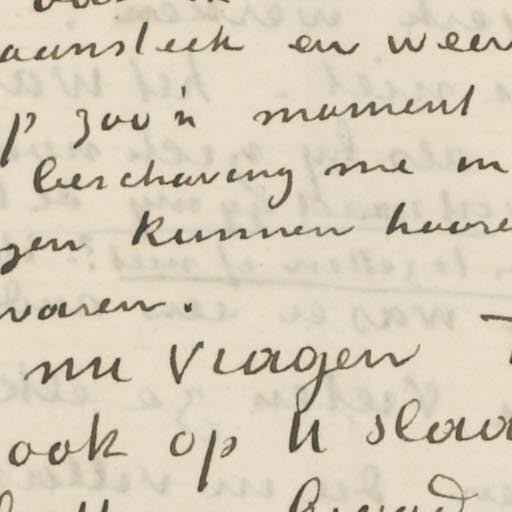 aansteek en weer
p zoo'n moment
beschaving me in
gen kunnen hoore
waren.
nu vragen
ook op U slaa